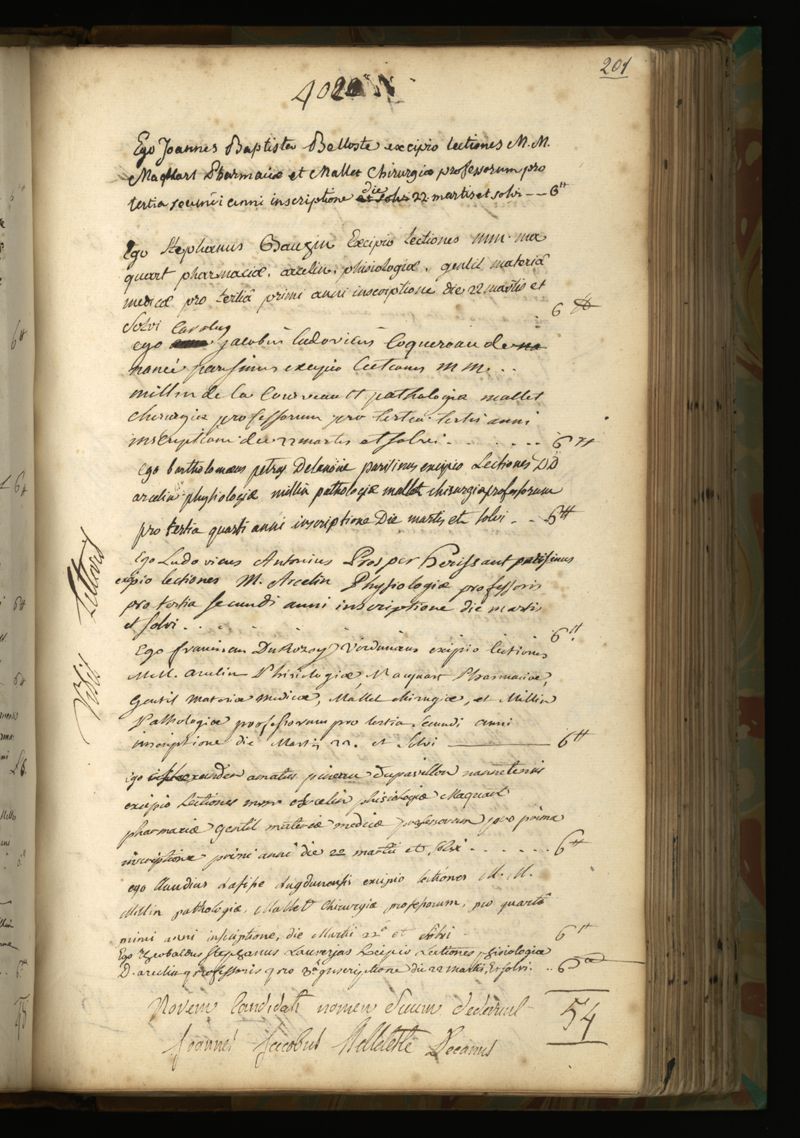 201
Ego Joannes Baptista Belloste excipio lectiones M.M.
Macquart Pharmaciæ et Mallet Chirurgiæ professorum pro
tertia secundi anni inscriptione die 22 martis et solvi -- 6tt
Ego Stephanus Gauzin Excipio lectiones mm. ma
quart pharmaciæ, arcelin, phisiologiæ, gentil materiæ
medicæ pro tertiâ primi anni inscriptione die 22 martis et
solvi 6 tt
ego carolus jacobus ludovicus Coquereau de
nancé parisinus excipio lectiones m m. . .
millin de la Courveault pathologiæ mallet
chirurgiæ professorum pro tertia tertii anni
inscriptione die 22 martis et solvi . . . . . . . 6 tt
Ego bartholomæus petrus Delanoüe parisinus excipio Lectiones DD
arcelin physiologiæ, millin pathologiæ mallet chirurgiæ professorum
pro tertia quarti anni inscriptione Die martis et solvi . . 6tt
Ego Ludovicus Antonius Prosper herissant parisinus
excipio lectiones M. Arcelin Physiologiæ professoris
pro tertia secundi anni inscriptione die martis
et solvi . . . 6tt
Ego franciscus DuRozoy Virdunæus excipio lectiones
M.M. arcelin Phisiologiæ, Macquart Pharmaciæ,
Gentil materiæ medicæ, Mallet chirurgiæ, et Millin
Pathologiæ professorum pro tertia secundi anni
inscriptione die Martis 22. et solvi 6tt
ego alexander amatus pineau dupavillon nannetensis
excipio Lectiones mm arcelin phisiologiæ Maquart
pharmaciæ gentil materiæ medicæ professorum pro prima
inscriptione primi anni die 22 martii et solvi . . . . . . 6tt
ego Claudius Lafisse Lugdunensis excipio lectiones M. M.
Millin pathologiæ, Mallet Chirurgiæ professorum, pro quartâ
primi anni inscriptione, die Martii 22â et solvi 6tt
Ego Theobaldus Stephanus Lauverjat Excipio Lectiones physiologiæ
D. arcelin professoris pro 3a inscriptione die 22 martis, Et solvi. . . 6tt
Novem Candidati nomen suum dederunt 54
Joannes Jacobus Belleteste Decanus